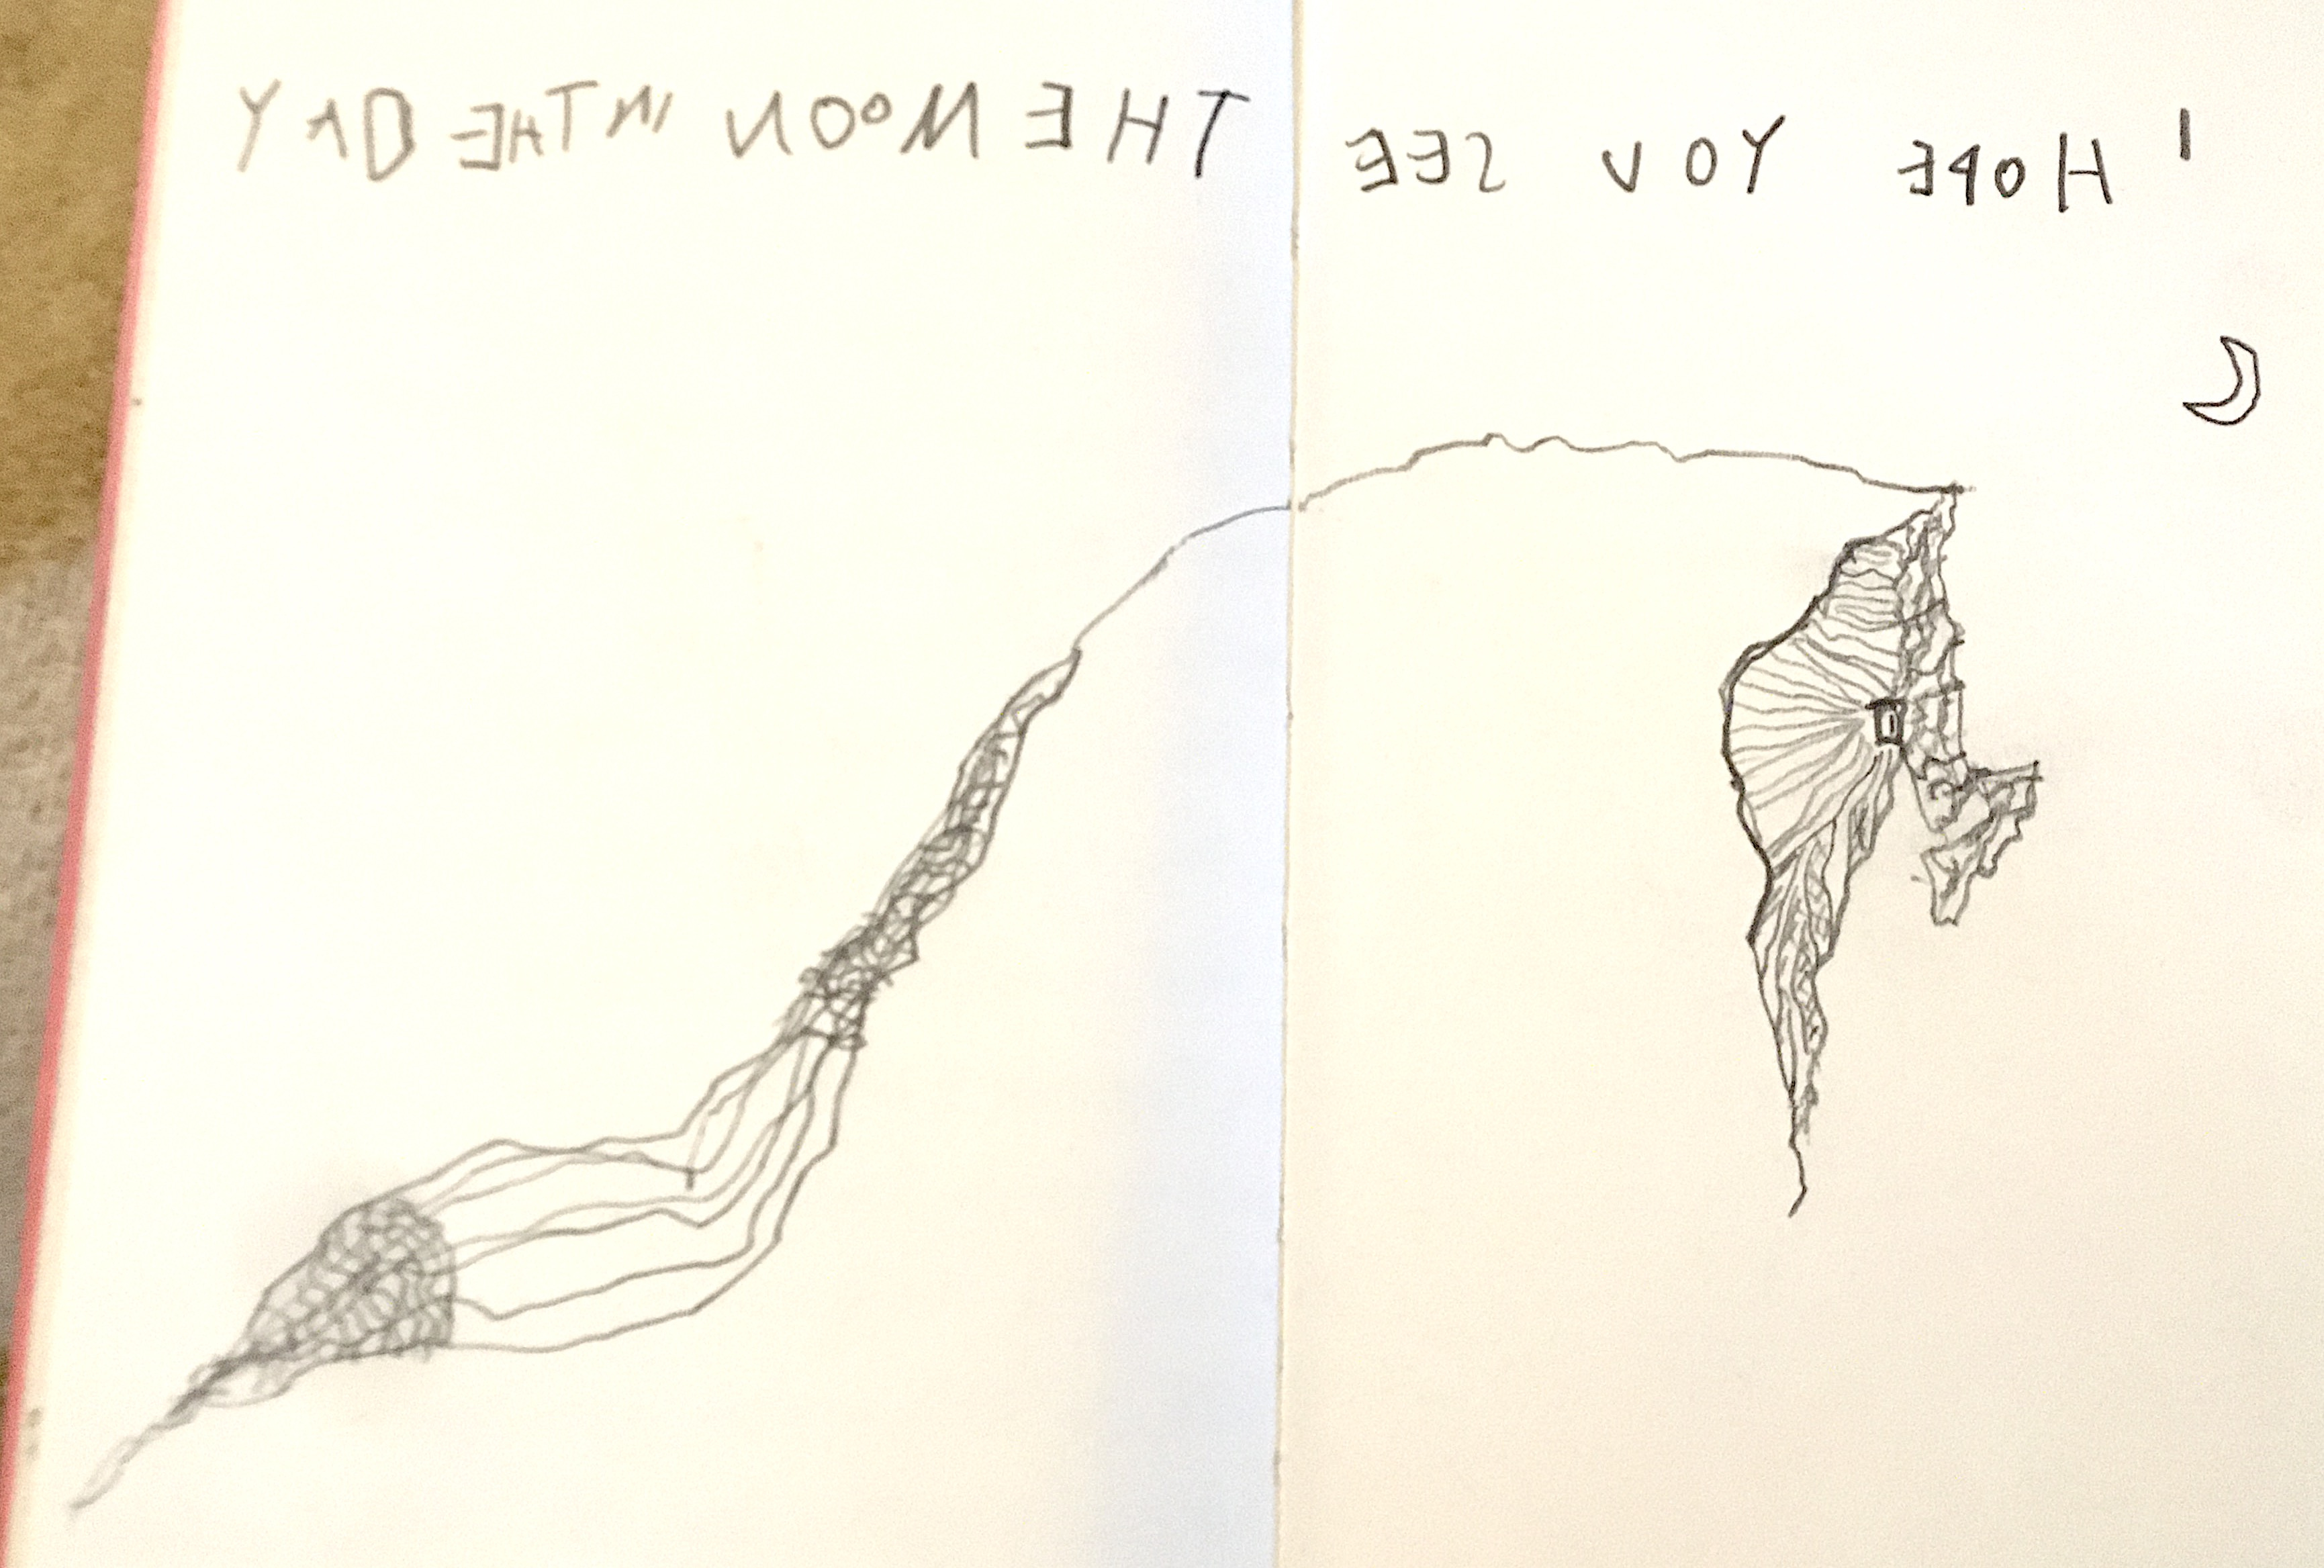 I HOPE YOU SEE THE MOON IN THE DAY